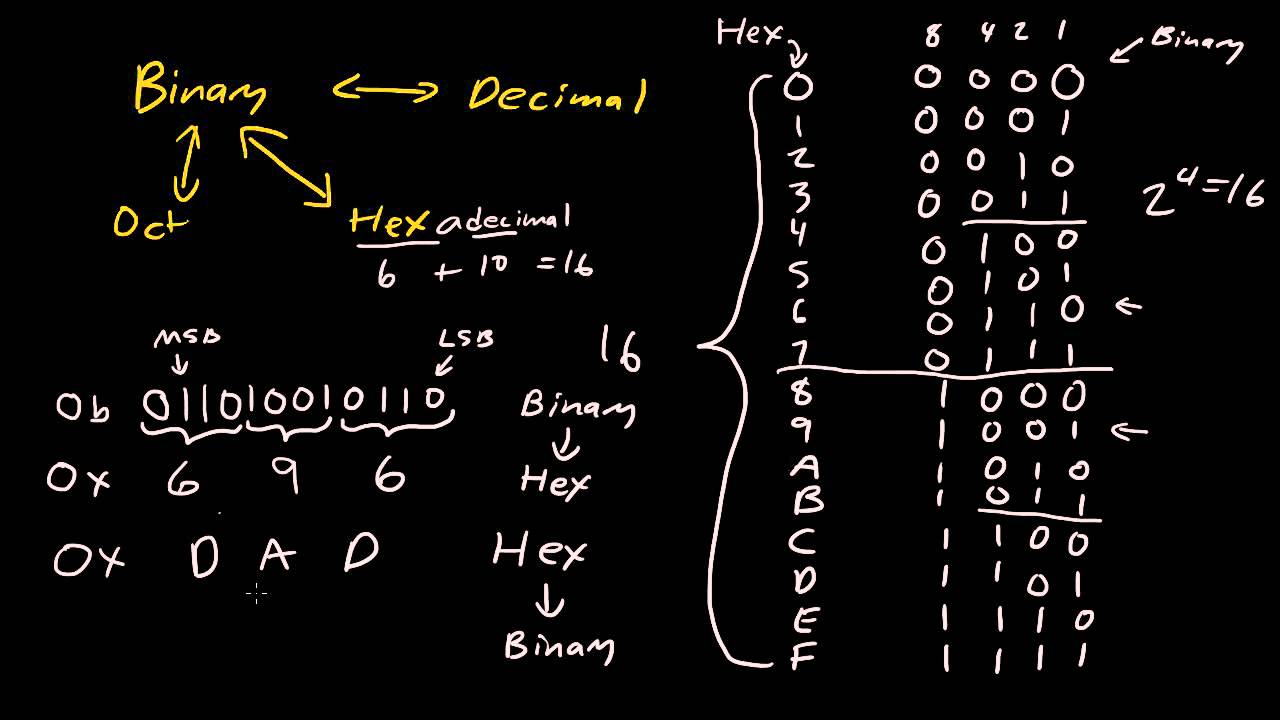 Binary ↔ Decimal
Oct Hexadecimal
6 + 10 = 16
MSB LSB
0b 011010010110 Binary
0x 6 9 6 Hex
0x D A D Hex
Binary
16
Hex 8 4 2 1 Binary
0 0 0 0 0
1 0 0 0 1
2 0 0 1 0
3 0 0 1 1
4 0 1 0 0
5 0 1 0 1
6 0 1 1 0
7 0 1 1 1
8 1 0 0 0
9 1 0 0 1
A 1 0 1 0
B 1 0 1 1
C 1 1 0 0
D 1 1 0 1
E 1 1 1 0
F 1 1 1 1
2⁴=16